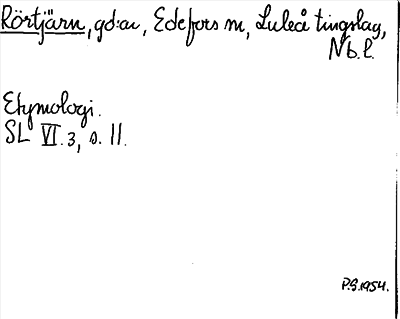 Rörtjärn, gd:ar, Edefors sn, Luleå tingslag,
Nb.l.
Etymologi.
SL VI.3, s. 11.
P.S.1954.